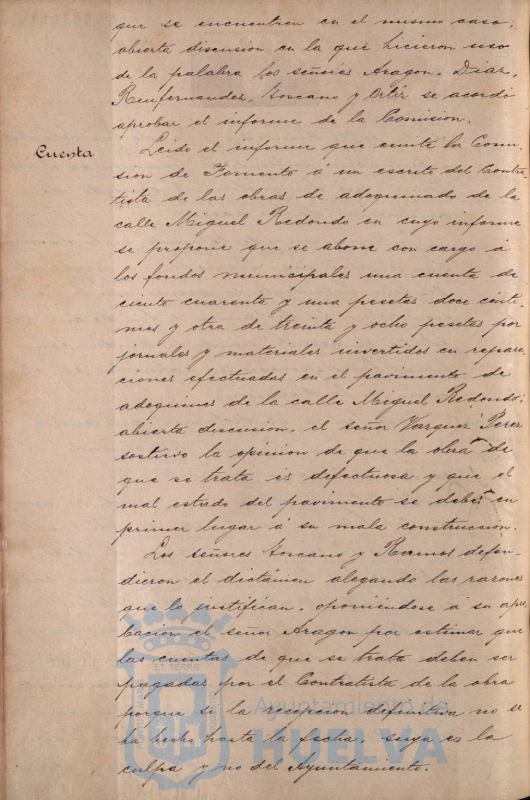 que se encuentren en el mismo caso.
abierta discusion en la que hicieron uso
de la palabra los señores Aragon, Diaz,
Renfernandez, Toscano y Ortiz se acordó
aprobar el informe de la Comision.
Cuenta
Leido el informe que emite la Comi
sion de Fomento á un escrito del Contra
tista de las obras de adoquinado de la
calle Miguel Redondo en cuyo informe
se propone que se abone con cargo á
los fondos municipales una cuenta de
ciento cuarenta y una pesetas doce cénti
mos y otra de treinta y ocho pesetas por
jornales y materiales invertidos en repara
ciones efectuadas en el pavimento de
adoquines de la calle Miguel Redondo;
abierta discusion, el señor Vazquez Perez
sostuvo la opinion de que la obra de
que se trata es defectuosa y que el
mal estado del pavimento se debe en
primer lugar á su mala construccion.
Los señores Toscano y Ramos defen
dieron el dictámen alegando las razones
que lo justifican, oponiéndose á su apro
bacion el señor Aragon por estimar que
las cuentas de que se trata deben ser
pagadas por el Contratista de la obra
porque si la recepcion definitiva no se
ha hecho hasta la fecha suya es la
culpa y no del Ayuntamiento.
Ayuntamiento de
HUELVA